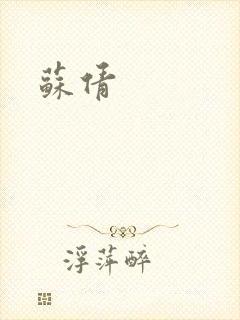 蘇倩
浮萍醉